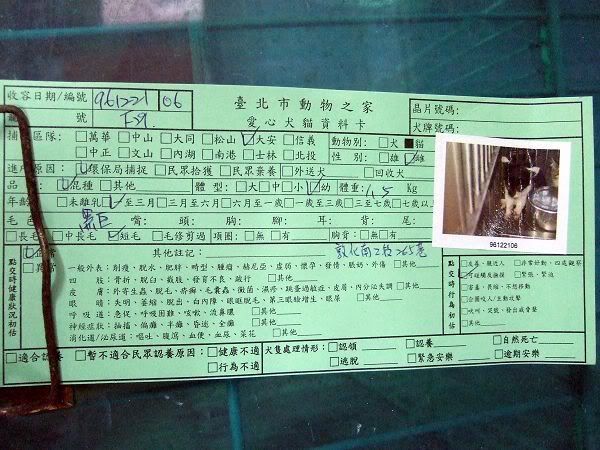 收容日期/編號 961221 06 臺北市動物之家 晶片號碼:
號 F39 愛心犬貓資料卡 犬牌號碼:
捕 區隊: □萬華 □中山 □大同 □松山 ☑大安 □信義 動物別: □犬 ■貓
□中正 □文山 □內湖 □南港 □士林 □北投 性 別: □雄 ☑雌
進 原因: ☑環保局捕捉 □民眾拾獲 □民眾棄養 □外送犬 □回收犬
品 : ☑混種 □其他 體型: □大 □中 □小 ☑幼 體重: 1.5 Kg
年齡: □未離乳 ☑至三月 □三月至六月 □六月至一歲 □一歲至三歲 □三至七歲 □七歲以上
毛色: 黑白 嘴: 頭: 胸: 腳: 耳: 背: 尾:
□長毛 □中長毛 ☑短毛 □毛修剪過 項圈: □無 □有 胸背: □無 □有
點交時健康狀況初估 ☑正常 其他註記: 敦化南2段265巷
□異常 一般外表: 削瘦、脫水、肥胖、畸型、腫瘤、赫尼亞、虛弱、懷孕、發情、脹奶、外傷 □其他
四 肢: 骨折、脫臼、截肢、發育不良、跛行 □其他
皮 膚: 外寄生蟲、脫毛、疥癬、毛囊蟲、黴菌、濕疹、跳蚤過敏症、皮屑、內分泌失調 □其他
眼 睛: 失明、萎縮、脫出、白內障、眼眶脫毛、第三眼瞼增生、眼屎 □其他
呼 吸 道: 急促、呼吸困難、咳嗽、流鼻膿 □其他
神經症狀: 抽搐、偏癱、半癱、昏迷、全癱 □其他
消化道/泌尿道: 嘔吐、腹瀉、血便、血尿、菜花 □其他
96122106
點交時行為初估 □友善、親近人 □非常好動、四處觀察
☑可碰觸及撫摸 □緊張、緊迫
□害羞、畏縮、不想移動
□企圖咬人/主動攻擊
□吠叫、哭號、發出威脅聲
□其他
□適合認養 □暫不適合民眾認養原因: □健康不適 犬隻處理情形: □認領 □認養 □自然死亡
□行為不適 □逃脫 □緊急安樂 □逾期安樂